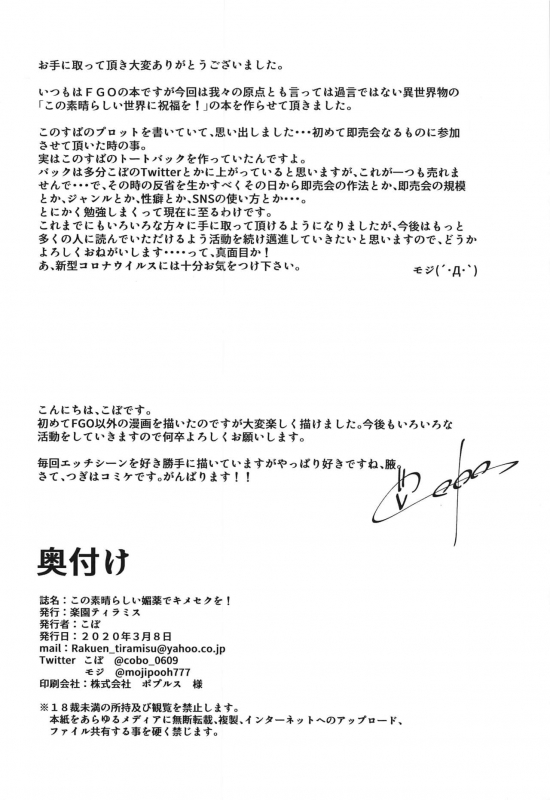 お手に取って頂き大変ありがとうございました。
いつもはＦＧＯの本ですが今回は我々の原点とも言っては過言ではない異世界物の
「この素晴らしい世界に祝福を！」の本を作らせて頂きました。
このすばのプロットを書いていて、思い出しました・・・初めて即売会なるものに参加
させて頂いた時の事。
実はこのすばのトートバックを作っていたんですよ。
バックは多分こぼのTwitterとかに上がっていると思いますが、これが一つも売れま
せんで・・・で、その時の反省を生かすべくその日から即売会の作法とか、即売会の規模
とか、ジャンルとか、性癖とか、SNSの使い方とか・・・。
とにかく勉強しまくって現在に至るわけです。
これまでにもいろいろな方々に手に取って頂けるようになりましたが、今後はもっと
多くの人に読んでいただけるよう活動を続け邁進していきたいと思いますので、どうか
よろしくおねがいします・・・・って、真面目か！
あ、新型コロナウイルスには十分お気をつけ下さい。
モジ(´・Д・`)
こんにちは、こぼです。
初めてFGO以外の漫画を描いたのですが大変楽しく描けました。今後もいろいろな
活動をしていきますので何卒よろしくお願いします。
毎回エッチシーンを好き勝手に描いていますがやっぱり好きですね、腋。
さて、つぎはコミケです。がんばります！！
奥付け
誌名：この素晴らしい媚薬でキメセクを！
発行：楽園ティラミス
発行者：こぼ
発行日：２０２０年３月８日
mail：Rakuen_tiramisu@yahoo.co.jp
Twitter こぼ @cobo_0609
モジ @mojipooh777
印刷会社：株式会社 ポプルス 様
※１８歳未満の所持及び観覧を禁止します。
本紙をあらゆるメディアに無断転載、複製、インターネットへのアップロード、
ファイル共有する事を硬く禁じます。